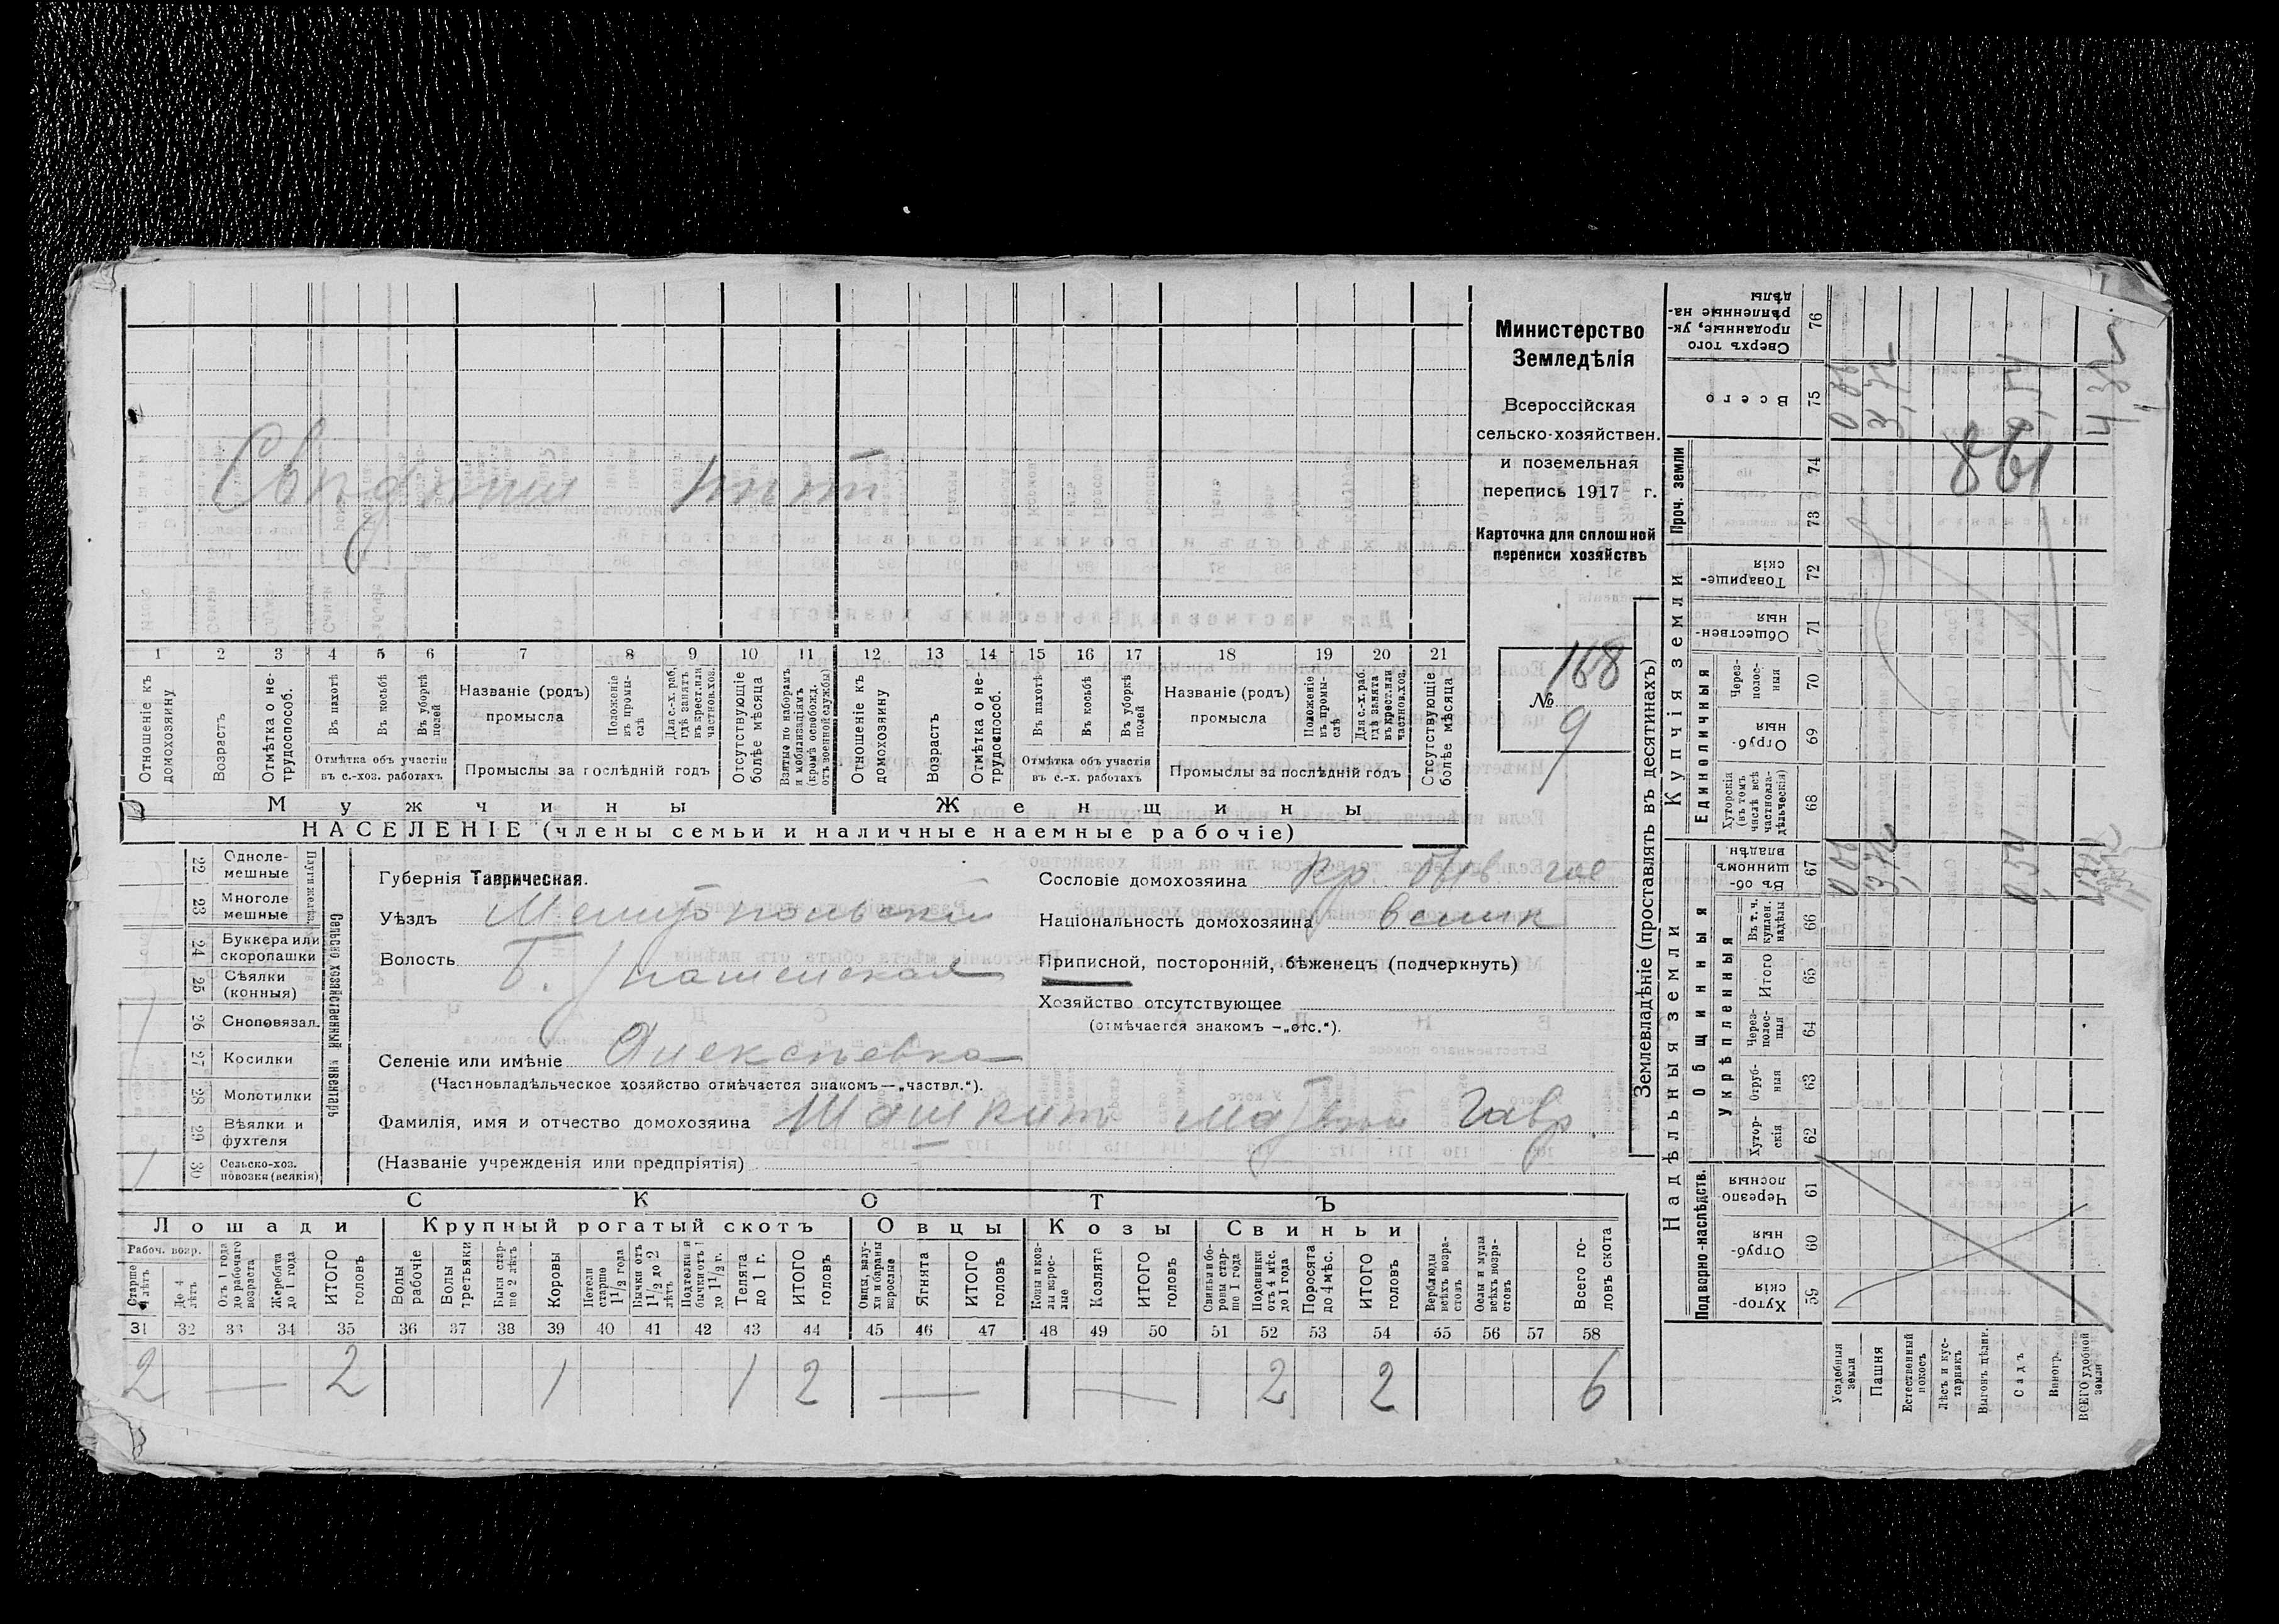 Свѣдѣній нѣтъ
1 2 3 4 5 6 7 8 9 10 11 12 13 14 15 16 17 18 19 20 21
Отношеніе къ домохозяину
Возрастъ
Отмѣтка о нетрудоспособ.
Въ пахотѣ
Въ косьбѣ
Въ уборкѣ полей
Отмѣтка объ участіи въ с.-хоз. работахъ
Названіе (родъ) промысла
Положеніе въ промыслѣ
Для с.-х. раб. гдѣ занятъ въ крест. или частнов. хоз.
Промыслы за послѣдній годъ
Отсутствующіе болѣе мѣсяца
Взятые по наборамъ и мобилизаціямъ (кромѣ освобожд. отъ военной службы)
Отношеніе къ домохозяину
Возрастъ
Отмѣтка о нетрудоспособ.
Въ пахотѣ
Въ косьбѣ
Въ уборкѣ полей
Отмѣтка объ участіи въ с.-х. работахъ
Названіе (родъ) промысла
Положеніе въ промыслѣ
Для с.-х. раб. гдѣ занята въ крест. или частнов. хоз.
Промыслы за послѣдній годъ
Отсутствующіе болѣе мѣсяца
Мужчины
Женщины
НАСЕЛЕНІЕ (члены семьи и наличные наемные рабочіе)
Министерство
Земледѣлія
Всероссійская
сельско-хозяйствен.
и поземельная
перепись 1917 г.
Карточка для сплошной
переписи хозяйствъ
№ 168
9
22 Однолемешные
23 Многолемешные
24 Буккера или скоропашки
25 Сѣялки (конныя)
26 Сноповязал.
27 Косилки
28 Молотилки
29 Вѣялки и фухтеля
30 Сельско-хоз. повозки (всякія)
Сельско хозяйственный инвентарь
Губернія Таврическая.
Уѣздъ Мелитопольскій
Волость Б.
Селеніе или имѣніе Алексѣевка
(Частновладѣльческое хозяйство отмѣчается знакомъ—„частвл.“).
Фамилія, имя и отчество домохозяина Шашкин Матвѣй Гавр.
(Названіе учрежденія или предпріятія)
Сословіе домохозяина Кр. быв. гос
Національность домохозяина велик
Приписной, посторонній, бѣженецъ (подчеркнуть)
Хозяйство отсутствующее
(отмѣчается знакомъ —„отс.“).
СКОТЪ
Лошади
Крупный рогатый скотъ
Овцы
Козы
Свиньи
Рабоч. возр.
Старше 4 лѣтъ
До 4 лѣтъ
Отъ 1 года до рабочаго возраста
Жеребята до 1 года
ИТОГО головъ
Волы рабочіе
Волы третьяки
Быки старше 2 лѣтъ
Коровы
Нетели старше 1 1/2 года
Бычки отъ 1 1/2 до 2 лѣтъ
Подтелки и бычки отъ 1 до 1 1/2 г.
Телята до 1 г.
ИТОГО головъ
Овцы, валухи и бараны взрослые
Ягнята
ИТОГО головъ
Козы и козлы взрослые
Козлята
ИТОГО головъ
Свиньи и боровы старше 1 года
Подсвинки отъ 4 мѣс. до 1 года
Поросята до 4 мѣс.
ИТОГО головъ
Верблюды всѣхъ возрастовъ
Ослы и мулы всѣхъ возрастовъ
Всего головъ скота
31 32 33 34 35 36 37 38 39 40 41 42 43 44 45 46 47 48 49 50 51 52 53 54 55 56 57 58
2 — 2 1 1 2 — — 2 2 6
Землевладѣніе (проставлять въ десятинахъ)
Надѣльныя земли
Купчія земли
Проч. земли
Подворно-наслѣдств.
Общинныя
Укрѣпленныя
Единоличныя
Сверхъ того проданные, укрѣпленные надѣлы 76
Всего 75
74
73
Товарищескія 72
Общественныя 71
Черезполосныя 70
Отрубныя 69
Хуторскія (въ томъ числѣ всѣ частновладѣльческія) 68
Въ общинномъ владѣн. 67
Въ т. ч. куплен. надѣлы 66
Итого 65
Черезполосныя 64
Отрубныя 63
Хуторскія 62
Черезполосныя 61
Отрубныя 60
Хуторскія 59
Усадебныя земли
Пашня
Естественный покосъ
Лѣсъ и кустарникъ
Выгонъ цѣлин.
Садъ
Виногр.
ВСЕГО удобной земли
861
0,06
3,72
0,54
4,32
0,06
3,72
0,54